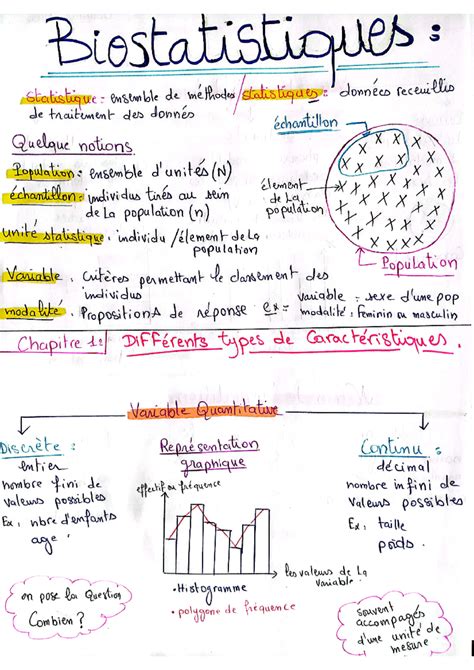 Biostatistiques :
Statistique : ensemble de méthodes / statistiques : données receuillis
de traitement des donnés
échantillon
Quelque notions
Population : ensemble d'unités (N)
échantillon : individus tirés au sein
de la population (n)
élement
de la
population
unité statistique : individu / élement de la
population
Population
Variable : Critères permettant le classement des
individus
modalité : Propositions de réponse ex = variable : sexe d'une pop
modalité : Feminin ou masculin
Chapitre 1 : Différents types de Caractéristiques.
Variable Quantitative
Discrète :
entier
nombre fini de
valeurs possibles
Ex : nbre d'enfants
age.
Représentation
graphique
effectif ou fréquence
les valeurs de la
variable.
• Histogramme
• polygone de fréquence
Continu :
décimal
nombre infini de
valeurs possibles
Ex : taille
poids.
on pose la Question
Combien ?
souvent
accompagés
d'une unité de
mesure